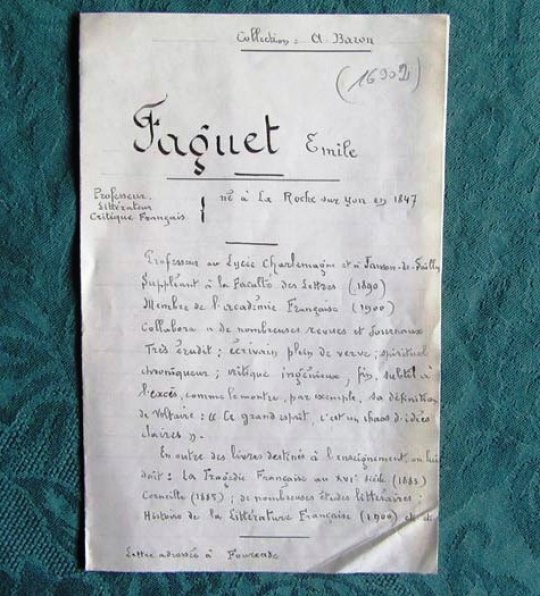 Collection : A Baron
(16902)
Faguet Emile
Professeur
Littérateur
Critique Français } né à La Roche sur yon en 1847
Professeur au Lycée Charlemagne et à Janson-de-Sailly
Suppléant à la Faculté des Lettres (1890)
Membre de l'académie Française (1900)
Collabora à de nombreuses revues et Journaux
Très érudit ; écrivain plein de verve ; spirituel
chroniqueur ; critique ingénieux, fin, subtil à
l'excès, comme le montre, par exemple, sa définition
de Voltaire : « Ce grand esprit, c'est un chaos d'idées
claires ».
En outre des livres destinés à l'enseignement, on lui
doit : La Tragédie Française au XVIe siècle (1883)
Corneille (1885) ; de nombreuses études littéraires ;
Histoire de la Littérature Française (1900) etc
Lettre adressée à